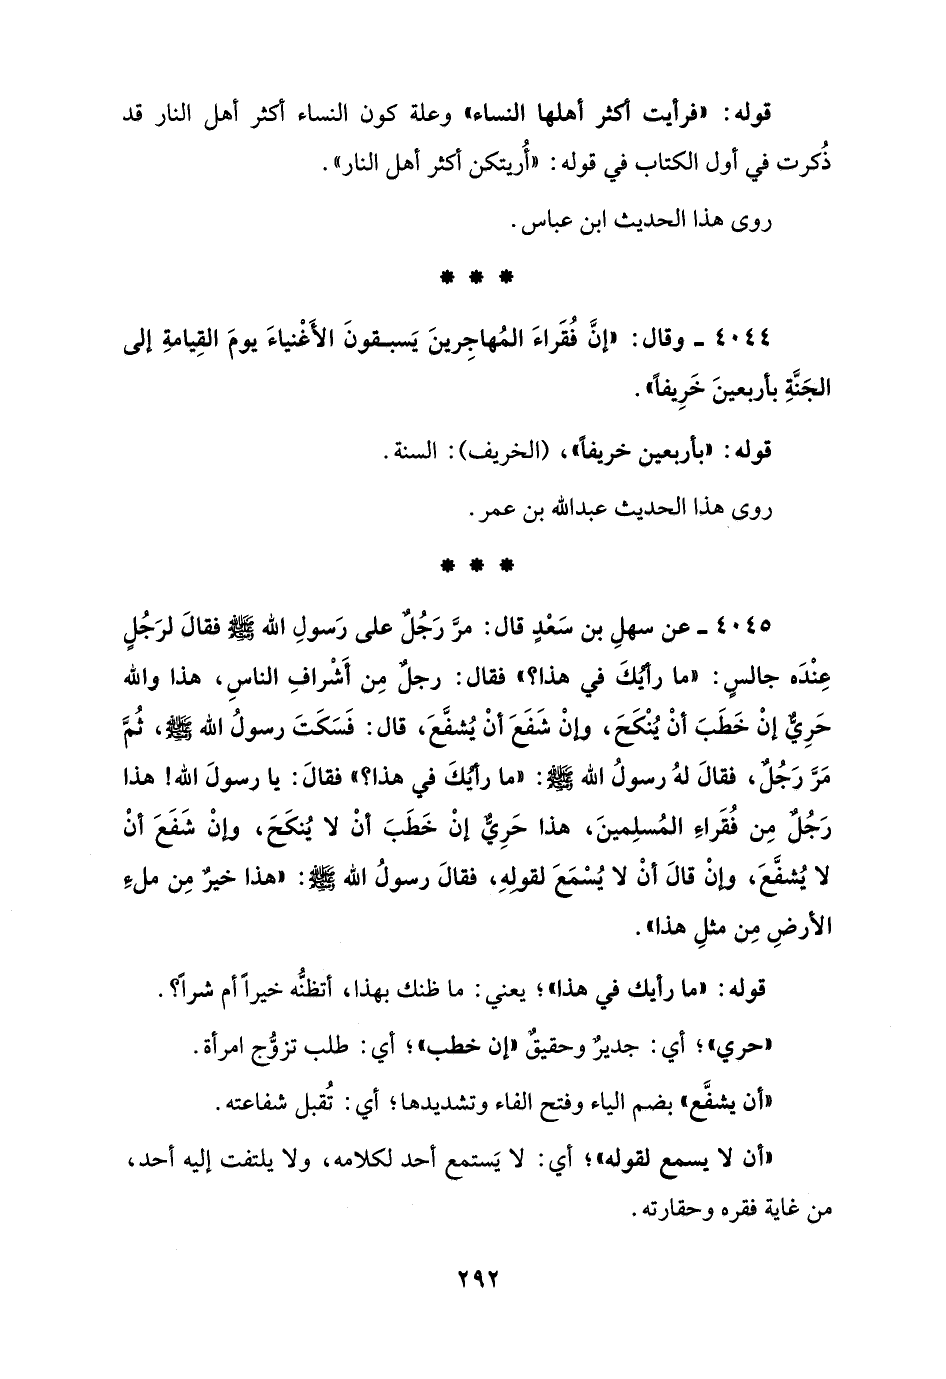 قوله: «فرأيت أكثر أهلها النساء» وعلة كون النساء أكثر أهل النار قد
ذُكرت في أول الكتاب في قوله: «أُريتكن أكثر أهل النار».
روى هذا الحديث ابن عباس.
* * *
٤٠٤٤ ـ وقال: «إنَّ فُقَراءَ المُهاجِرينَ يَسبـقونَ الأَغْنياءَ يومَ القِيامةِ إلى
الجَنَّةِ بأربعينَ خَرِيفاً».
قوله: «بأربعين خريفاً»، (الخريف): السنة.
روى هذا الحديث عبدالله بن عمر.
* * *
٤٠٤٥ ـ عن سهلِ بن سَعْدٍ قال: مرَّ رَجُلٌ على رَسولِ الله ﷺ فقالَ لرَجُلٍ
عِنْدَه جالسٍ: «ما رأيُكَ في هذا؟» فقال: رجلٌ مِن أَشْرافِ الناسِ، هذا والله
حَرِيٌّ إنْ خَطَبَ أنْ يُنْكَحَ، وإنْ شَفَعَ أنْ يُشفَّعَ، قال: فَسَكَتَ رسولُ الله ﷺ، ثُمَّ
مَرَّ رَجُلٌ، فقالَ لهُ رسولُ الله ﷺ: «ما رأيُكَ في هذا؟» فقالَ: يا رسولَ الله! هذا
رَجُلٌ مِن فُقَراءِ المُسلِمينَ، هذا حَرِيٌّ إنْ خَطَبَ أنْ لا يُنكَحَ، وإنْ شَفَعَ أنْ
لا يُشفَّعَ، وإنْ قالَ أنْ لا يُسْمَعَ لقولِهِ، فقالَ رسولُ الله ﷺ: «هذا خيرٌ مِن ملءِ
الأرضِ مِن مثلِ هذا».
قوله: «ما رأيك في هذا»؛ يعني: ما ظنك بهذا، أتظنُّه خيراً أم شراً؟.
«حري»؛ أي: جديرٌ وحقيقٌ «إن خطب»؛ أي: طلب تزوُّج امرأة.
«أن يشفَّع» بضم الياء وفتح الفاء وتشديدها؛ أي: تُقبل شفاعته.
«أن لا يسمع لقوله»؛ أي: لا يَستمع أحد لكلامه، ولا يلتفت إليه أحد،
من غاية فقره وحقارته.
٢٩٢